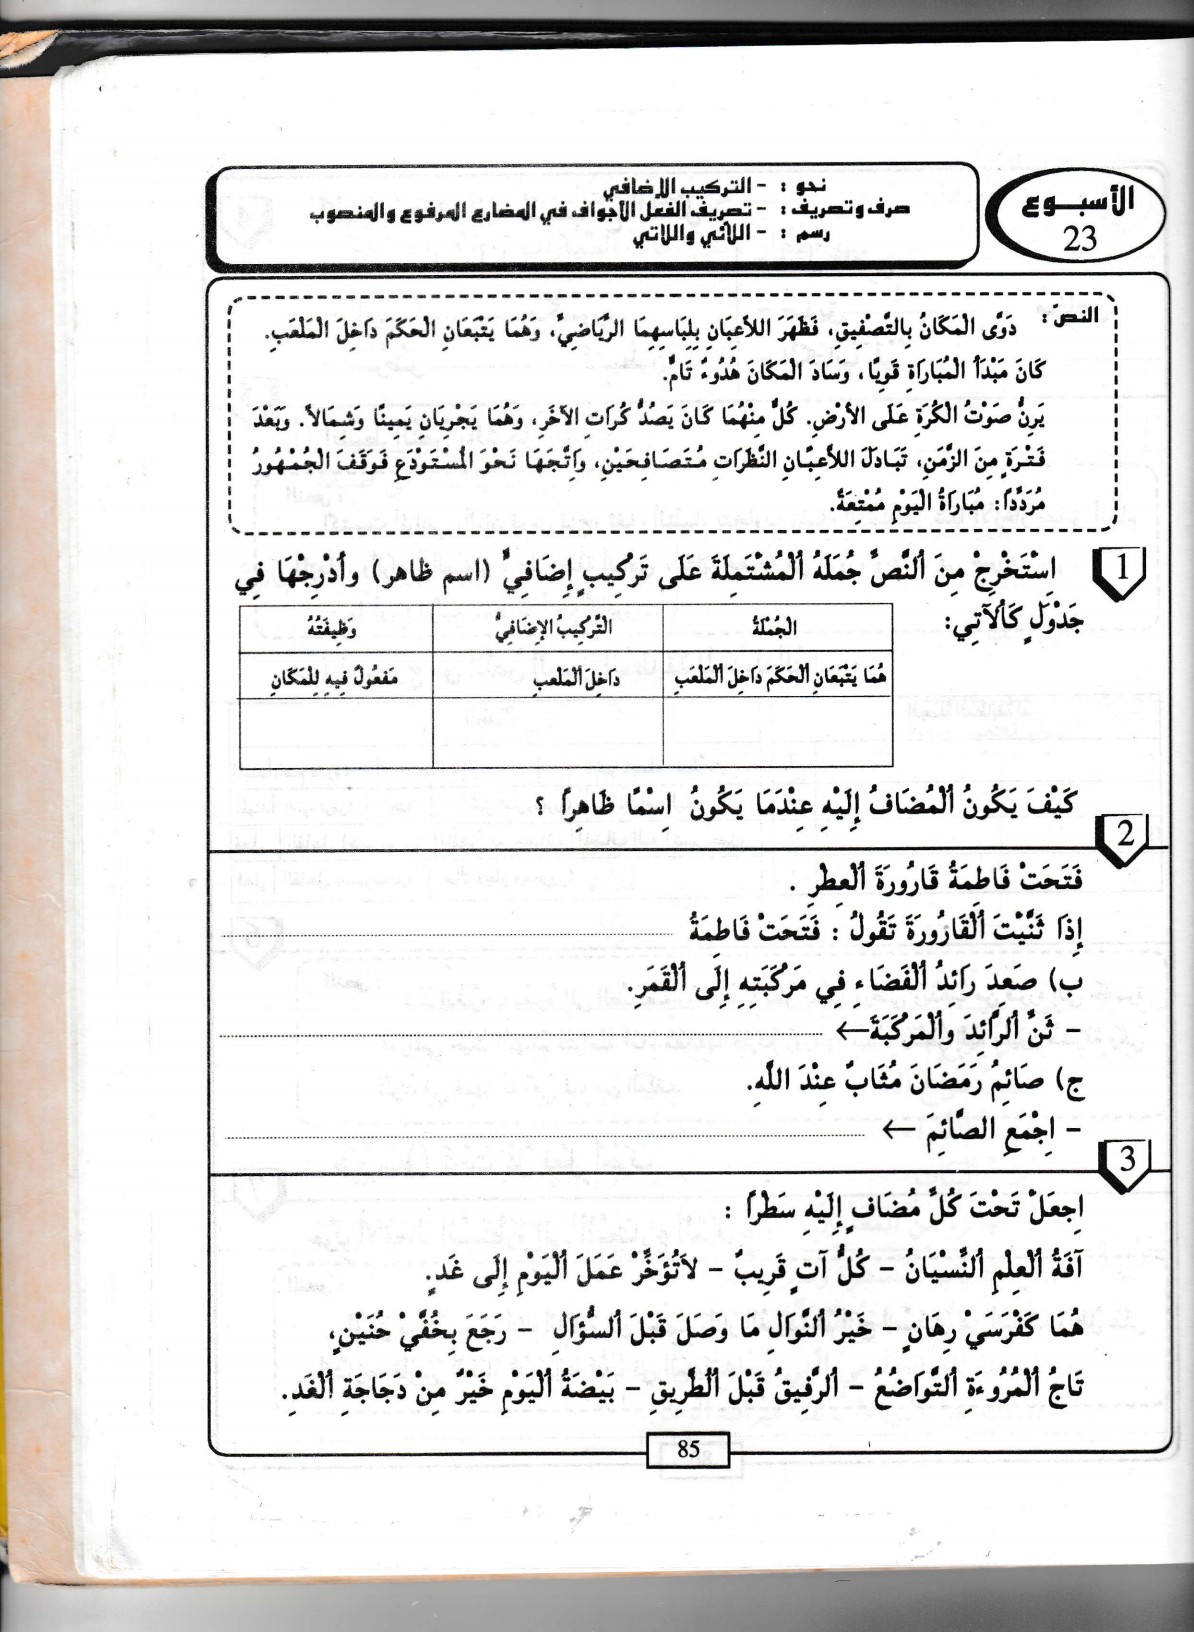 الأسبوع
23
نحو : - التركيب الإضافي
صرف وتصريف : - تصريف الفعل الأجواف في المضارع المرفوع والمنصوب
رسم : - اللائي واللاتي
النص : دَوَّى الْمَكَانُ بِالتَّصْفِيقِ، فَظَهَرَ اللاَّعِبَانِ بِلِبَاسِهِمَا الرِّيَاضِيِّ، وَهُمَا يَتْبَعَانِ الْحَكَمَ دَاخِلَ الْمَلْعَبِ.
كَانَ مَبْدَأُ الْمُبَارَاةِ قَوِيًّا، وَسَادَ الْمَكَانَ هُدُوءٌ تَامٌّ.
يَرِنُّ صَوْتُ الْكُرَةِ عَلَى الأَرْضِ. كُلٌّ مِنْهُمَا كَانَ يَصُدُّ كُرَاتِ الآخَرِ، وَهُمَا يَجْرِيَانِ يَمِينًا وَشِمَالاً. وَبَعْدَ
فَتْرَةٍ مِنَ الزَّمَنِ، تَبَادَلَ اللاَّعِبَانِ النَّظَرَاتِ مُتَصَافِحَيْنِ، وَاتَّجَهَا نَحْوَ الْمُسْتَوْدَعِ فَوَقَفَ الْجُمْهُورُ
مُرَدِّدًا: مُبَارَاةُ الْيَوْمِ مُمْتِعَةٌ.
1
اِسْتَخْرِجْ مِنَ النَّصِّ جُمَلَهُ الْمُشْتَمِلَةَ عَلَى تَرْكِيبٍ إِضَافِيٍّ (اسم ظاهر) وأدْرِجْهَا فِي
جَدْوَلٍ كَالآتِي:
الجُمْلَةُ التَّرْكِيبُ الإِضَافِيُّ وَظِيفَتُهُ
هُمَا يَتْبَعَانِ الْحَكَمَ دَاخِلَ الْمَلْعَبِ دَاخِلَ الْمَلْعَبِ مَفْعُولٌ فِيهِ لِلْمَكَانِ
كَيْفَ يَكُونُ الْمُضَافُ إِلَيْهِ عِنْدَمَا يَكُونُ اِسْمًا ظَاهِرًا ؟
2
فَتَحَتْ فَاطِمَةُ قَارُورَةَ الْعِطْرِ .
إِذَا ثَنَّيْتَ الْقَارُورَةَ تَقُولُ : فَتَحَتْ فَاطِمَةُ ........
ب) صَعِدَ رَائِدُ الْفَضَاءِ فِي مَرْكَبَتِهِ إِلَى الْقَمَرِ.
- ثَنِّ الرَّائِدَ وَالْمَرْكَبَةَ← ........
ج) صَائِمُ رَمَضَانَ مُثَابٌ عِنْدَ اللَّهِ.
- اِجْمَعِ الصَّائِمَ ← ........
3
اِجعَلْ تَحْتَ كُلِّ مُضَافٍ إِلَيْهِ سَطْرًا :
آفَةُ الْعِلْمِ النِّسْيَانُ - كُلُّ آتٍ قَرِيبٌ - لاَتُؤَخِّرْ عَمَلَ الْيَوْمِ إِلَى غَدٍ.
هُمَا كَفَرَسَيْ رِهَانٍ - خَيْرُ النَّوَالِ مَا وَصَلَ قَبْلَ السُّؤَالِ - رَجَعَ بِخُفَّيْ حُنَيْنٍ،
تَاجُ الْمُرُوءَةِ التَّوَاضُعُ - الرَّفِيقُ قَبْلَ الطَّرِيقِ - بَيْضَةُ الْيَوْمِ خَيْرٌ مِنْ دَجَاجَةِ الْغَدِ.
85